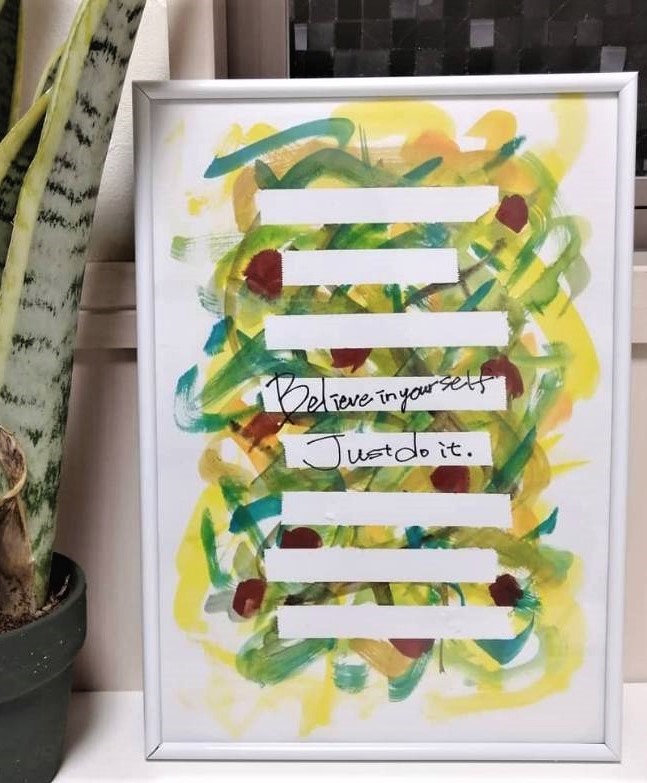 Believe in yourself
Just do it.